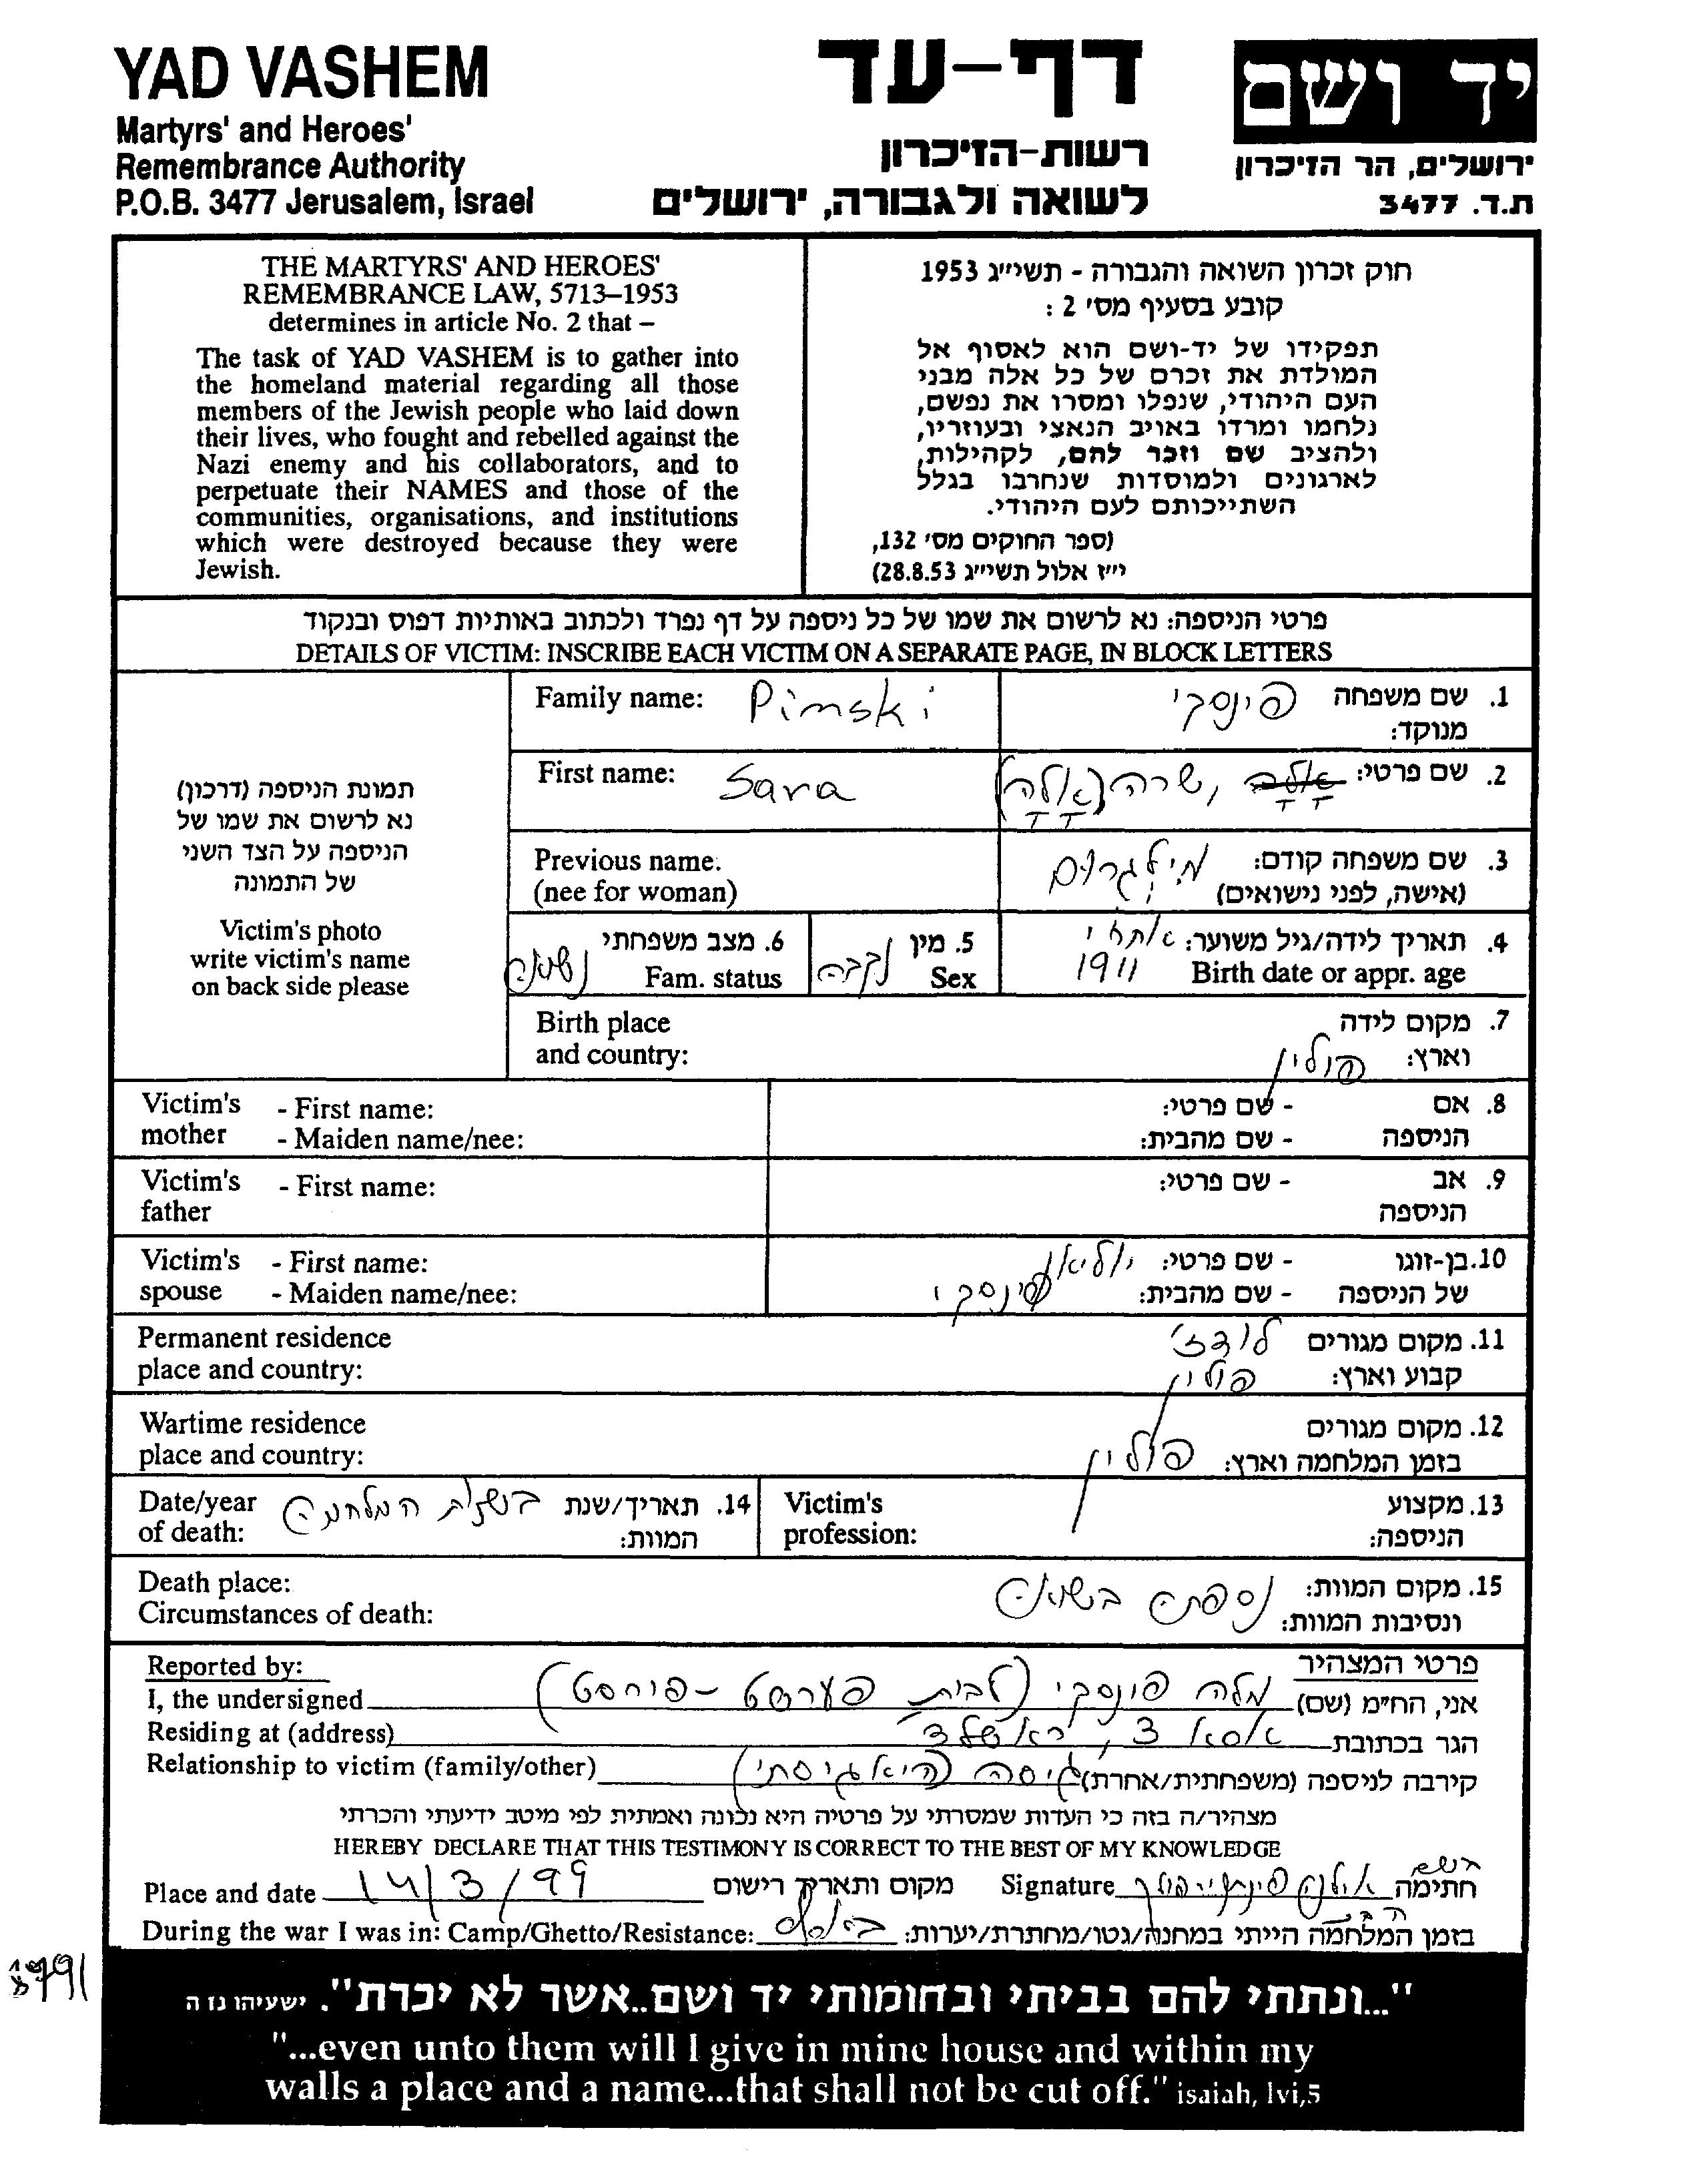 YAD VASHEM
Martyrs' and Heroes'
Remembrance Authority
P.O.B. 3477 Jerusalem, Israel
דף-עד
רשות-הזיכרון
לשואה ולגבורה, ירושלים
יד ושם
ירושלים, הר הזיכרון
ת.ד. 3477
THE MARTYRS' AND HEROES'
REMEMBRANCE LAW, 5713–1953
determines in article No. 2 that –
The task of YAD VASHEM is to gather into
the homeland material regarding all those
members of the Jewish people who laid down
their lives, who fought and rebelled against the
Nazi enemy and his collaborators, and to
perpetuate their NAMES and those of the
communities, organisations, and institutions
which were destroyed because they were
Jewish.
חוק זכרון השואה והגבורה - תשי״ג 1953
קובע בסעיף מס׳ 2 :
תפקידו של יד-ושם הוא לאסוף אל
המולדת את זכרם של כל אלה מבני
העם היהודי, שנפלו ומסרו את נפשם,
נלחמו ומרדו באויב הנאצי ובעוזריו,
ולהציב שם וזכר להם, לקהילות,
לארגונים ולמוסדות שנחרבו בגלל
השתייכותם לעם היהודי.
(ספר החוקים מס׳ 132,
י״ז אלול תשי״ג 28.8.53)
פרטי הניספה: נא לרשום את שמו של כל ניספה על דף נפרד ולכתוב באותיות דפוס ובנקוד
DETAILS OF VICTIM: INSCRIBE EACH VICTIM ON A SEPARATE PAGE, IN BLOCK LETTERS
תמונת הניספה (דרכון)
נא לרשום את שמו של
הניספה על הצד השני
של התמונה
Victim's photo
write victim's name
on back side please
Family name: Pinski
1. שם משפחה פינסקי
מנוקד:
First name: Sara
2. שם פרטי: אלה, שרה (אלה)
Previous name.
(nee for woman)
3. שם משפחה קודם: מילגרום
(אישה, לפני נישואים)
4. תאריך לידה/גיל משוער:
Birth date or appr. age 1911
5. מין נקבה
Sex
6. מצב משפחתי נשואה
Fam. status
Birth place
and country:
7. מקום לידה
וארץ: פולין
Victim's mother - First name:
- Maiden name/nee:
8. אם הניספה - שם פרטי:
- שם מהבית:
Victim's father - First name:
9. אב הניספה - שם פרטי:
Victim's spouse - First name:
- Maiden name/nee:
10. בן-זוגו של הניספה - שם פרטי: יוליאן
- שם מהבית: פינסקי
Permanent residence
place and country:
11. מקום מגורים לודז׳
קבוע וארץ: פולין
Wartime residence
place and country:
12. מקום מגורים
בזמן המלחמה וארץ: פולין
Date/year
of death:
14. תאריך/שנת המוות: בשנות המלחמה
Victim's
profession:
13. מקצוע
הניספה:
Death place:
Circumstances of death:
15. מקום המוות: נספתה בשואה
ונסיבות המוות:
Reported by:
פרטי המצהיר
I, the undersigned
אני, הח״מ (שם) מלה פינסקי (לבית פערסט - פורסט)
Residing at (address)
הגר בכתובת
Relationship to victim (family/other)
קירבה לניספה (משפחתית/אחרת) גיסה (היא גיסתי)
מצהיר/ה בזה כי העדות שמסרתי על פרטיה היא נכונה ואמתית לפי מיטב ידיעתי והכרתי
HEREBY DECLARE THAT THIS TESTIMONY IS CORRECT TO THE BEST OF MY KNOWLEDGE
Place and date 14/3/99 מקום ותאריך רישום
Signature חתימה
During the war I was in: Camp/Ghetto/Resistance:
בזמן המלחמה הייתי במחנה/גטו/מחתרת/יערות:
"...ונתתי להם בביתי ובחומותי יד ושם..אשר לא יכרת". ישעיהו נו ה
"...even unto them will I give in mine house and within my
walls a place and a name...that shall not be cut off." isaiah, lvi,5